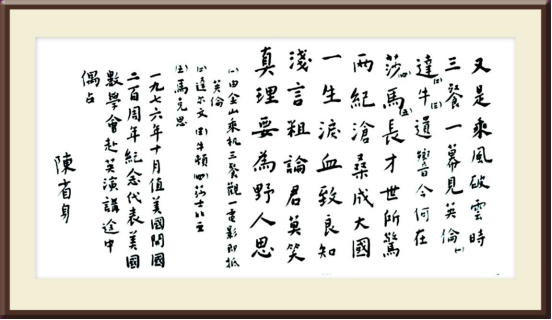 又是乘風破雲時
三餐一幕見英倫(一)
達(二)牛(三)道響今何在
莎(四)馬(五)長才世所驚
兩紀滄桑成大國
一生淚血致良知
淺言粗論君莫笑
真理要為野人思
(一)由金山乘机三餐觀一電影即抵
英倫
(二)達尔文(三)牛頓(四)莎士比亞
(五)馬克思
一九七六年十月值美國開國
二百周年紀念代表美國
數學會赴英演講途中
偶占
陳省身